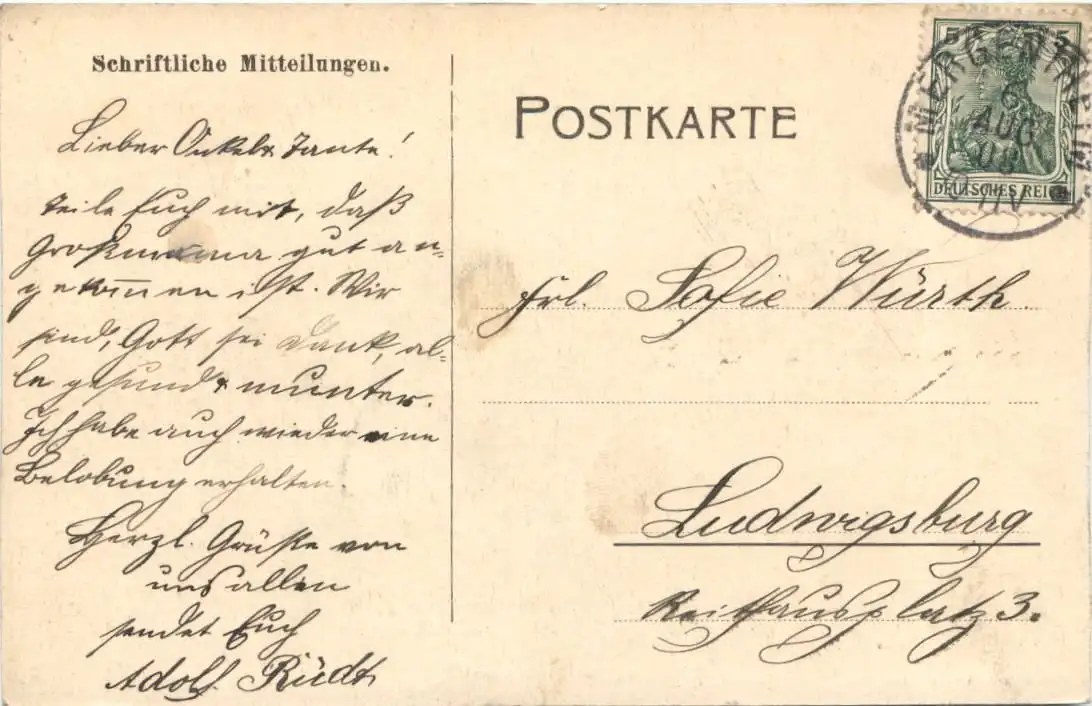 Schriftliche Mitteilungen.
Lieber Onkel & Tante!
teile Euch mit, daß
Großmama gut an-
gekom̄en ist. Wir
sind, Gott sei Dank, al-
le gesund & munter.
Ich habe auch wieder eine
Belobung erhalten.
Herzl. Grüße von
uns allen
sendet Euch
Adolf Rüdt
POSTKARTE
5 5
DEUTSCHES REICH
MERGENTHEIM
6
AUG
08
Frl. Sofie Würth
Ludwigsburg
Reithausplatz 3.